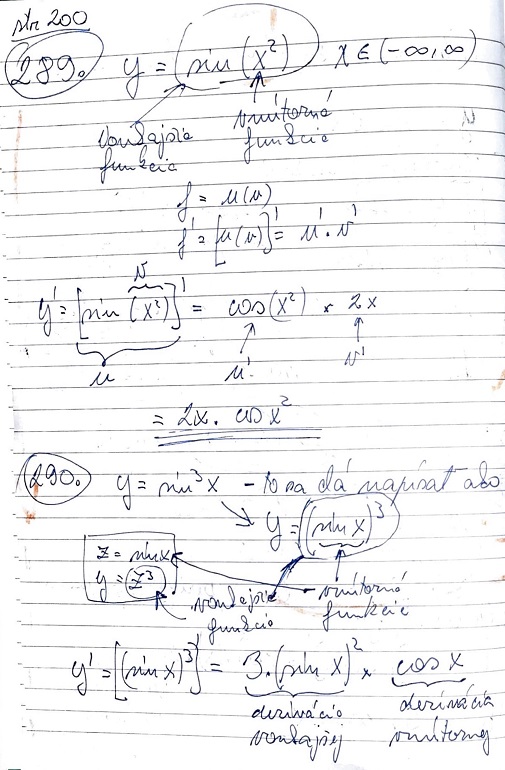 str 200
289. y = sin (x²) x ∈ (-∞,∞)
vonkajsia funkcia
vnútorná funkcia
f = u(v)
f' = [u(v)]' = u' · v'
v
y' = [sin (x²)]' = cos(x²) * 2x
u u' v'
= 2x · cos x²
290. y = sin³x - to sa dá napísat ako
y = (sin x)³
z = sinx
y = z³
vonkajsia funkcia
vnútorná funkcia
y' = [(sin x)³]' = 3·(sin x)² * cos x
derivácia vonkajšej
derivácia vnútornej